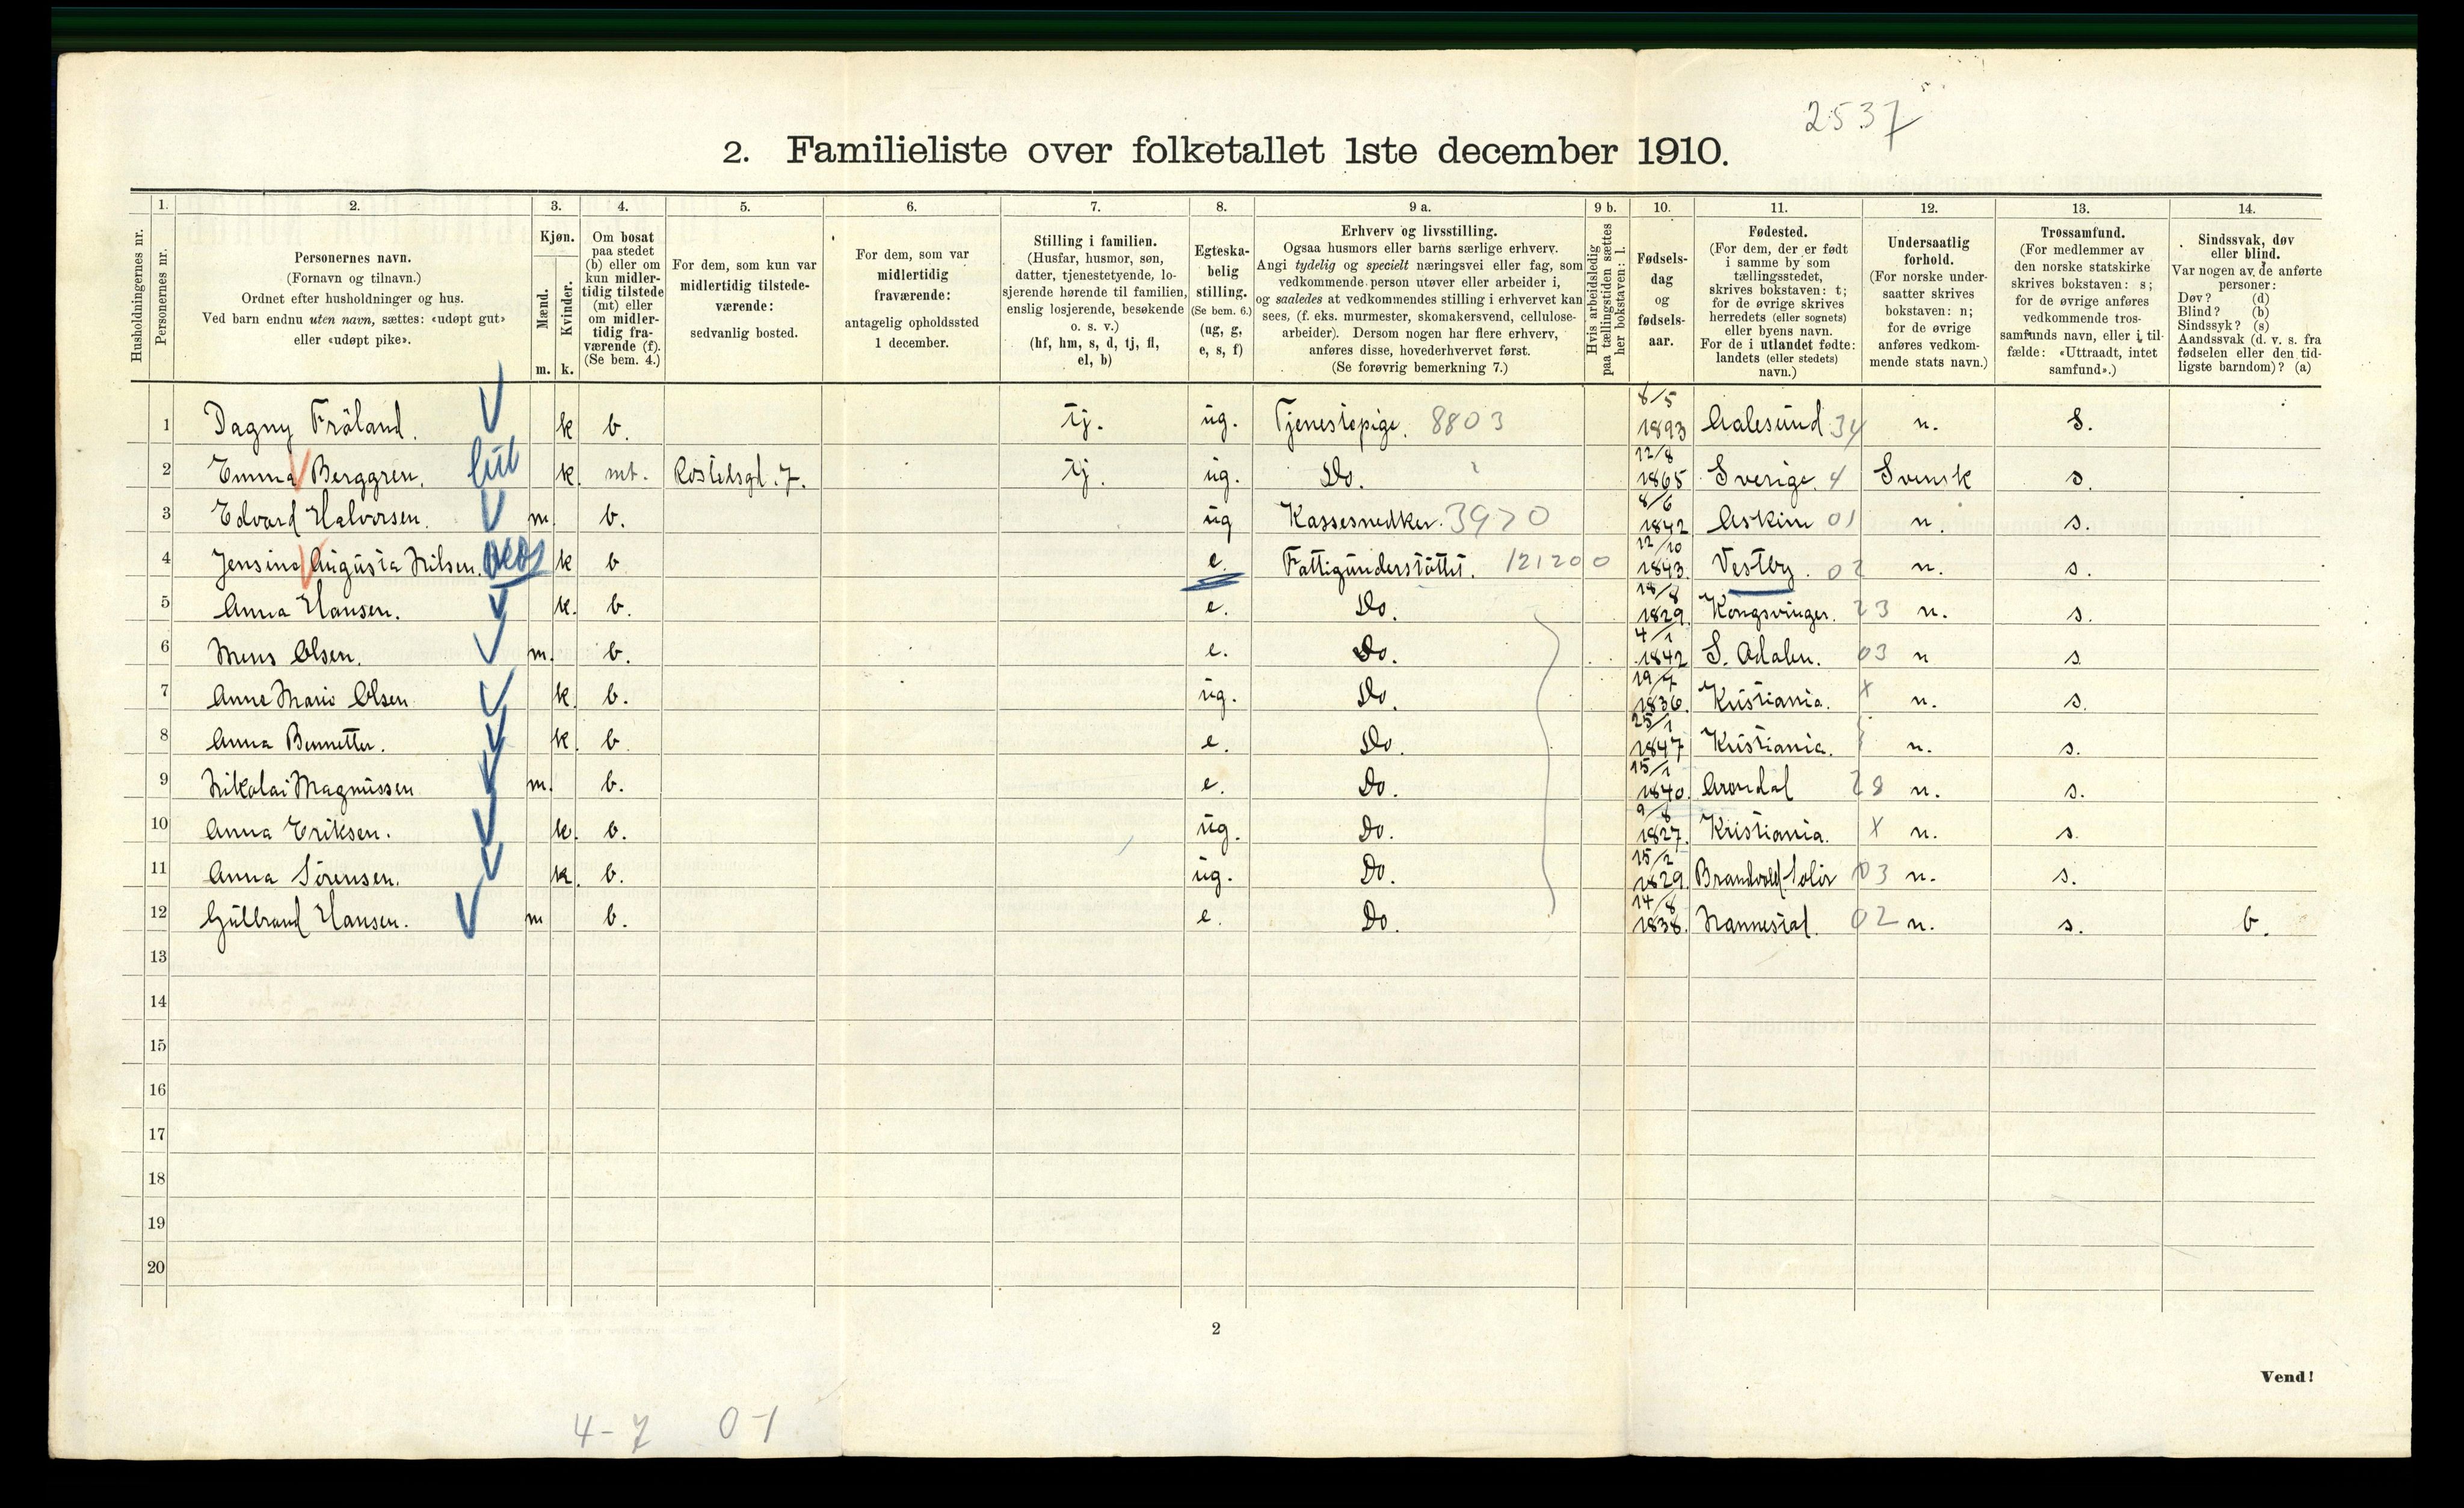 2537
2. Familieliste over folketallet 1ste december 1910.
Husholdningernes nr.
1. Personernes nr.
2. Personernes navn.
(Fornavn og tilnavn.)
Ordnet efter husholdninger og hus.
Ved barn endnu uten navn, sættes: «udøpt gut»
eller «udøpt pike».
3. Kjøn.
Mænd. Kvinder.
m. k.
4. Om bosat
paa stedet
(b) eller om
kun midler-
tidig tilstede
(mt) eller
om midler-
tidig fra-
værende (f).
(Se bem. 4.)
5. For dem, som kun var
midlertidig tilstede-
værende:
sedvanlig bosted.
6. For dem, som var
midlertidig
fraværende:
antagelig opholdssted
1 december.
7. Stilling i familien.
(Husfar, husmor, søn,
datter, tjenestetyende, lo-
sjerende hørende til familien,
enslig losjerende, besøkende
o. s. v.)
(hf, hm, s, d, tj, fl,
el, b)
8. Egteska-
belig
stilling.
(Se bem. 6.)
(ug, g,
e, s, f)
9 a. Erhverv og livsstilling.
Ogsaa husmors eller barns særlige erhverv.
Angi tydelig og specielt næringsvei eller fag, som
vedkommende person utøver eller arbeider i,
og saaledes at vedkommendes stilling i erhvervet kan
sees, (f. eks. murmester, skomakersvend, cellulose-
arbeider). Dersom nogen har flere erhverv,
anføres disse, hovederhvervet først.
(Se forøvrig bemerkning 7.)
9 b. Hvis arbeidsledig
paa tællingstiden sættes
her bokstaven: l.
10. Fødsels-
dag
og
fødsels-
aar.
11. Fødested.
(For dem, der er født
i samme by som
tællingsstedet,
skrives bokstaven: t;
for de øvrige skrives
herredets (eller sognets)
eller byens navn.
For de i utlandet fødte:
landets (eller stedets)
navn.)
12. Undersaatlig
forhold.
(For norske under-
saatter skrives
bokstaven: n;
for de øvrige
anføres vedkom-
mende stats navn.)
13. Trossamfund.
(For medlemmer av
den norske statskirke
skrives bokstaven: s;
for de øvrige anføres
vedkommende tros-
samfunds navn, eller i til-
fælde: «Uttraadt, intet
samfund».)
14. Sindssvak, døv
eller blind.
Var nogen av de anførte
personer:
Døv? (d)
Blind? (b)
Sindssyk? (s)
Aandssvak (d. v. s. fra
fødselen eller den tid-
ligste barndom)? (a)
1 Dagny Fröland. k b. tj. ug. Tjenestepige. 8803 8/5 1893 Aalesund 34 n. s.
2 Emma Berggren. k. mt. tj. ug. Do. 12/8 1865 Sverige. 4 Svensk s.
3 Edvard Halvorsen. m. b. ug Kassesnedker. 3970 8/6 1842 Askim 01 n. s.
4 Jensina Augusta Nilsen. k b e. Fattigunderstöttet. 121200 12/10 1843. Vestby. 02 n. s.
5 Anna Hansen. k. b. e. Do. 18/8 1829. Kongsvinger. 23 n. s.
6 Mens Olsen. m. b. e. Do. 4/1 1842 S. Odalen. 03 n s
7 Anne Marie Olsen k. b. ug. Do. 19/7 1836. Kristiania. x n. s.
8 Anna Bennetter. k. b e. Do. 25/1 1847 Kristiania. n. s.
9 Nikolai Magnussen m. b. e. Do. 15/1 1840. Arendal 28 n. s.
10 Anna Eriksen. k. b. ug. Do. 9/8 1827. Kristiania. x n. s.
11 Anna Sörensen. k. b. ug. Do. 15/2 1829. Brandvold Solör 03 n. s.
12 Gulbrand Hansen. m b. e. Do. 14/8 1838. Nannestad. 02 n. s. b.
13
14
15
16
17
18
19
20
2
Vend!
4-7 0-1